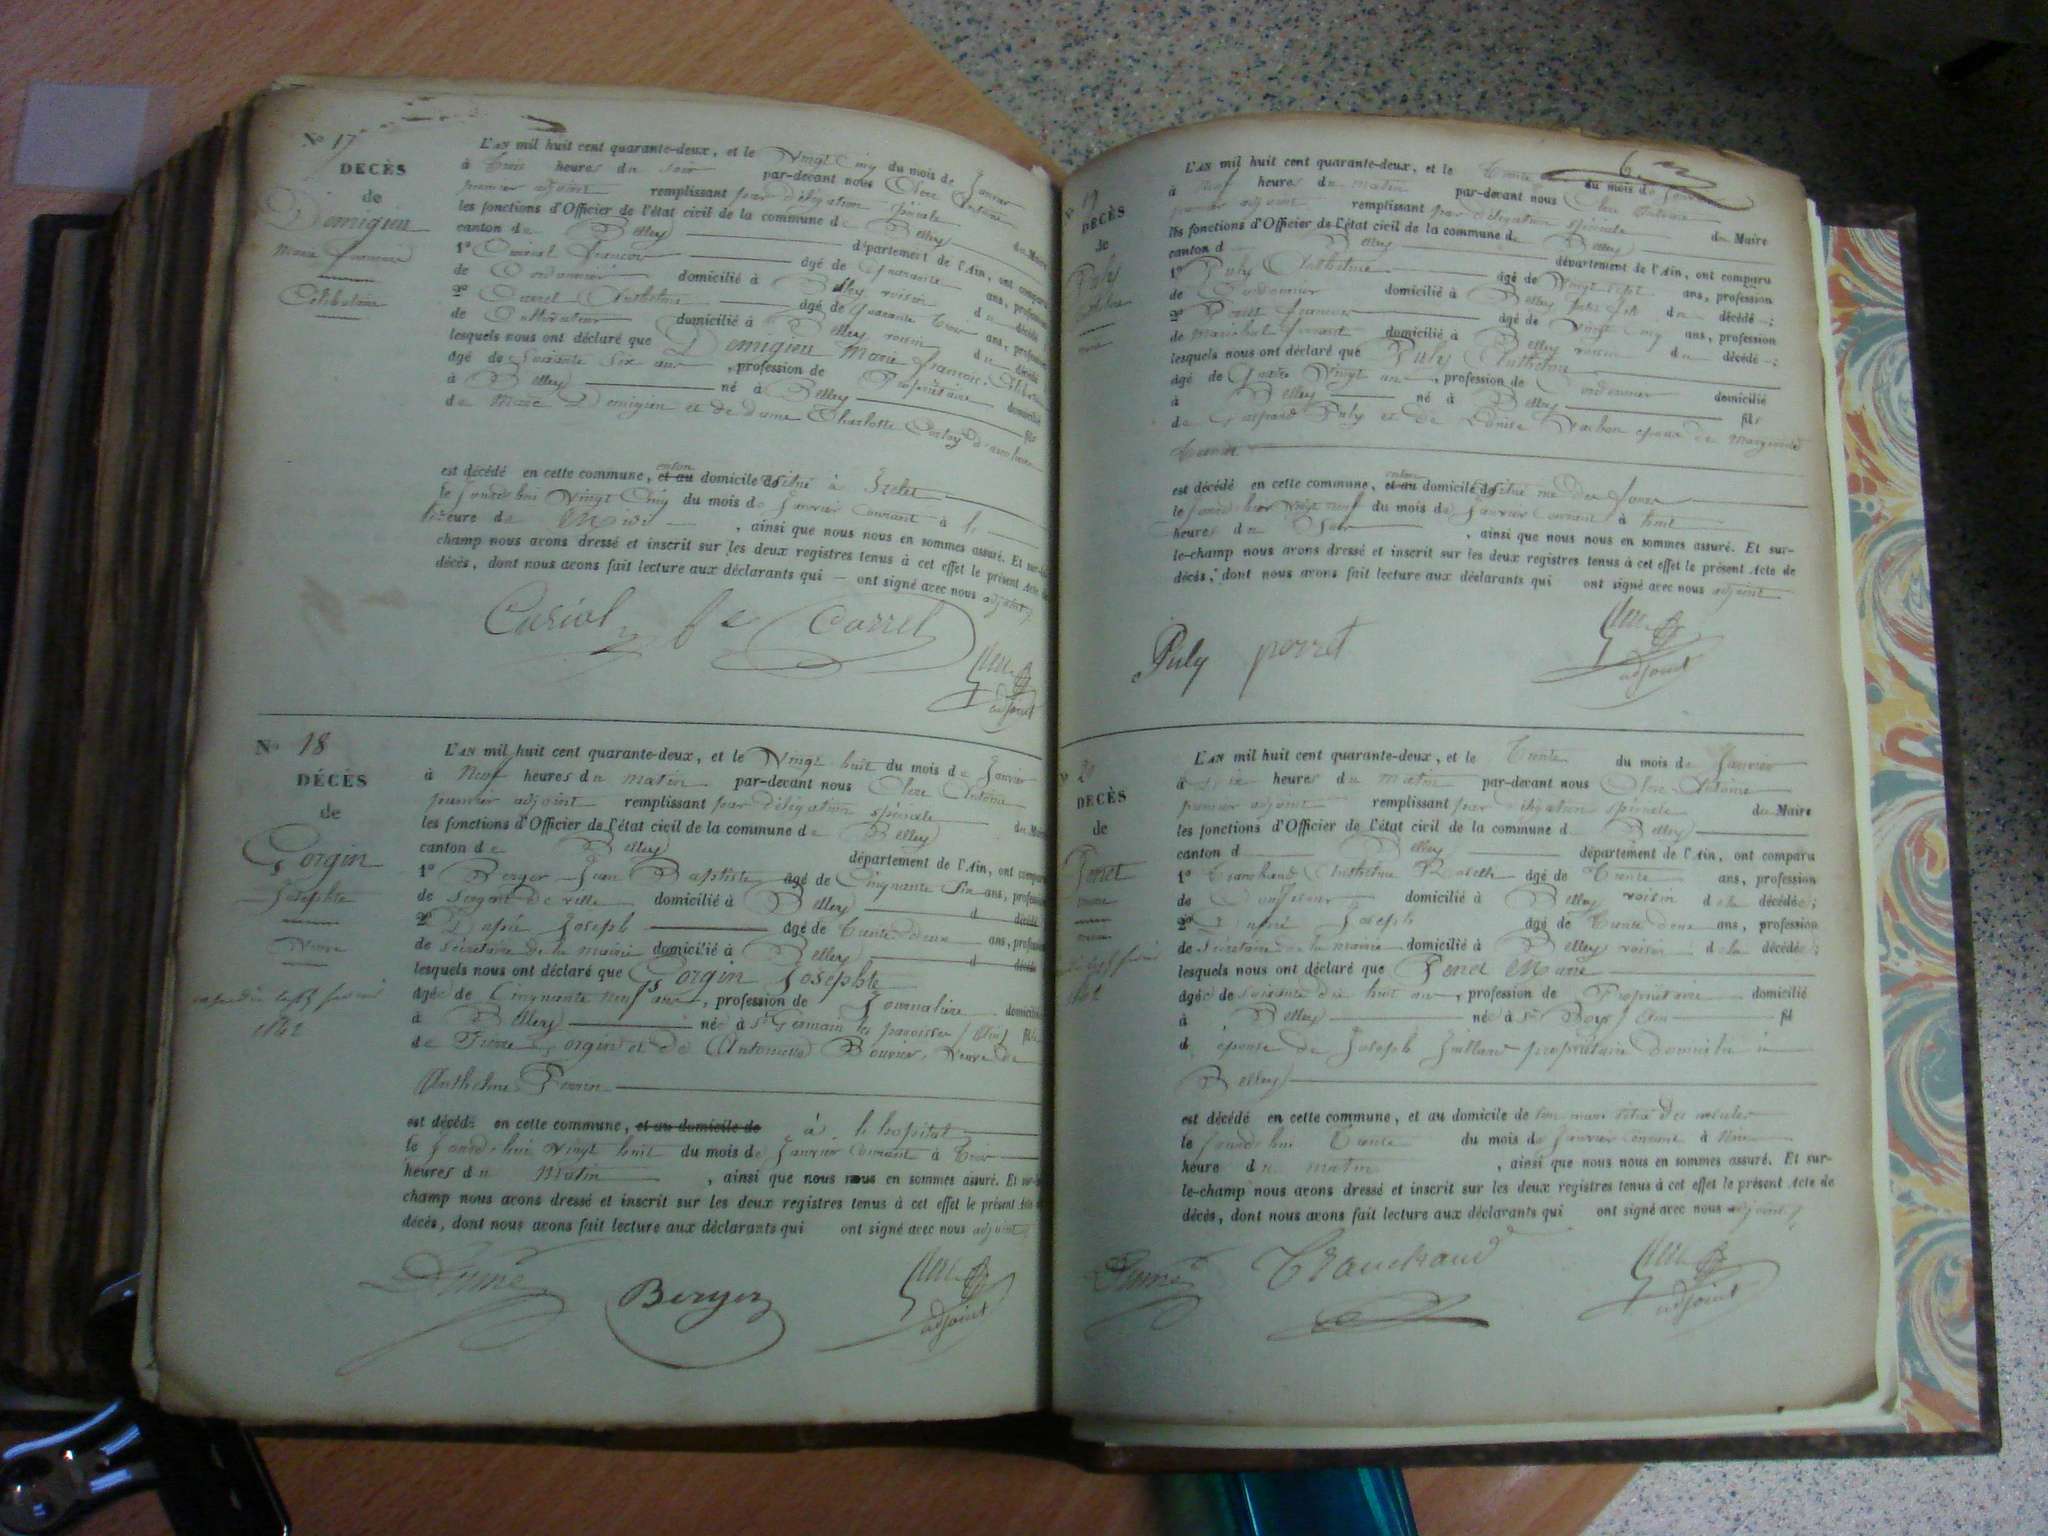 No 17
DECÈS
de
Domigieu
Marie François
Célibataire
L'AN mil huit cent quarante-deux, et le Vingt cinq du mois de Janvier
à trois heures du soir par-devant nous Clerc Antoine
premier adjoint remplissant par délégation spéciale du Maire
les fonctions d'Officier de l'état civil de la commune de Belley
canton de Belley département de l'Ain, ont comparu
1° François âgé de quarante ans, profession
de Cordonnier domicilié à Belley voisin du décédé
2° Carrel Anthelme âgé de quarante trois ans, profession
de Cultivateur domicilié à Belley voisin du décédé
lesquels nous ont déclaré que Domigieu Marie François
âgé de soixante six ans, profession de Propriétaire domicilié
à Belley né à Belley fils
de Marc Domigieu et de dame Charlotte
est décédé en cette commune, et au domicile situé à
le jourd'hui vingt cinq du mois de Janvier courant à
heure de Midi, ainsi que nous nous en sommes assuré. Et sur-le-
champ nous avons dressé et inscrit sur les deux registres tenus à cet effet le présent Acte de
décès, dont nous avons fait lecture aux déclarants qui – ont signé avec nous adjoint
Carrel
Clerc
adjoint
No 18
DÉCÈS
de
Gorgin
Josephte
Veuve
1842
L'AN mil huit cent quarante-deux, et le Vingt huit du mois de Janvier
à Neuf heures du matin par-devant nous Clerc Antoine
premier adjoint remplissant par délégation spéciale du Maire
les fonctions d'Officier de l'état civil de la commune de Belley
canton de Belley département de l'Ain, ont comparu
1° Berger Jean Baptiste âgé de Cinquante Six ans, profession
de Sergent de ville domicilié à Belley d décédé
2° Joseph âgé de trente deux ans, profession
de Sécrétaire de la mairie domicilié à Belley d décédé
lesquels nous ont déclaré que Gorgin Josephte
âgée de Cinquante neuf ans, profession de Journalière domiciliée
à Belley née à St Germain les paroisses (Ain) fille
de Pierre Gorgin et de Antoinette Bouvier, Veuve de
Anthelme Perrin
est décédée en cette commune, et au domicile de à l'hopital
le jourd'hui vingt huit du mois de Janvier courant à trois
heures du Matin, ainsi que nous nous en sommes assuré. Et sur-le-
champ nous avons dressé et inscrit sur les deux registres tenus à cet effet le présent Acte de
décès, dont nous avons fait lecture aux déclarants qui ont signé avec nous adjoint
Berger
Clerc
adjoint
6
19
DECÈS
de
Puly
Anthelme
L'AN mil huit cent quarante-deux, et le Trente du mois de Janvier
à Neuf heures du matin par-devant nous Clerc Antoine
premier adjoint remplissant par délégation spéciale du Maire
les fonctions d'Officier de l'état civil de la commune de Belley
canton d Belley département de l'Ain, ont comparu
1° Puly Anthelme âgé de Vingt sept ans, profession
de Cordonnier domicilié à Belley fils du décédé;
2° Porret François âgé de Vingt cinq ans, profession
de marechal ferrant domicilié à Belley voisin du décédé;
lesquels nous ont déclaré que Puly Anthelme
âgé de quatre Vingt ans, profession de Cordonnier domicilié
à Belley né à Belley fils
de Gaspard Puly et de Louise époux de Marguerite
est décédé en cette commune, et au domicile situé rue des
le jourd'hier Vingt neuf du mois de Janvier courant à huit
heures du Soir, ainsi que nous nous en sommes assuré. Et sur-
le-champ nous avons dressé et inscrit sur les deux registres tenus à cet effet le présent Acte de
décès, dont nous avons fait lecture aux déclarants qui ont signé avec nous adjoint
Puly porret
Clerc
adjoint
20
DECÈS
de
L'AN mil huit cent quarante-deux, et le Trente du mois de Janvier
à Dix heures du matin par-devant nous Clerc Antoine
premier adjoint remplissant par délégation spéciale du Maire
les fonctions d'Officier de l'état civil de la commune d Belley
canton d Belley département de l'Ain, ont comparu
1° Tranchand Anthelme âgé de Trente ans, profession
de Confiseur domicilié à Belley voisin de la décédée;
2° Joseph âgé de Trente deux ans, profession
de Sécrétaire de la mairie domicilié à Belley voisin de la décédée;
lesquels nous ont déclaré que Marie
âgée de soixante dix huit ans, profession de Propriétaire domicilié
à Belley née à St Bois (Ain) fil
d épouse de Joseph propriétaire domicilié à
Belley
est décédé en cette commune, et au domicile de son mari situé
le jourd'hui Trente du mois de Janvier courant à
heure du matin, ainsi que nous nous en sommes assuré. Et sur-
le-champ nous avons dressé et inscrit sur les deux registres tenus à cet effet le présent Acte de
décès, dont nous avons fait lecture aux déclarants qui ont signé avec nous adjoint
Tranchand
Clerc
adjoint